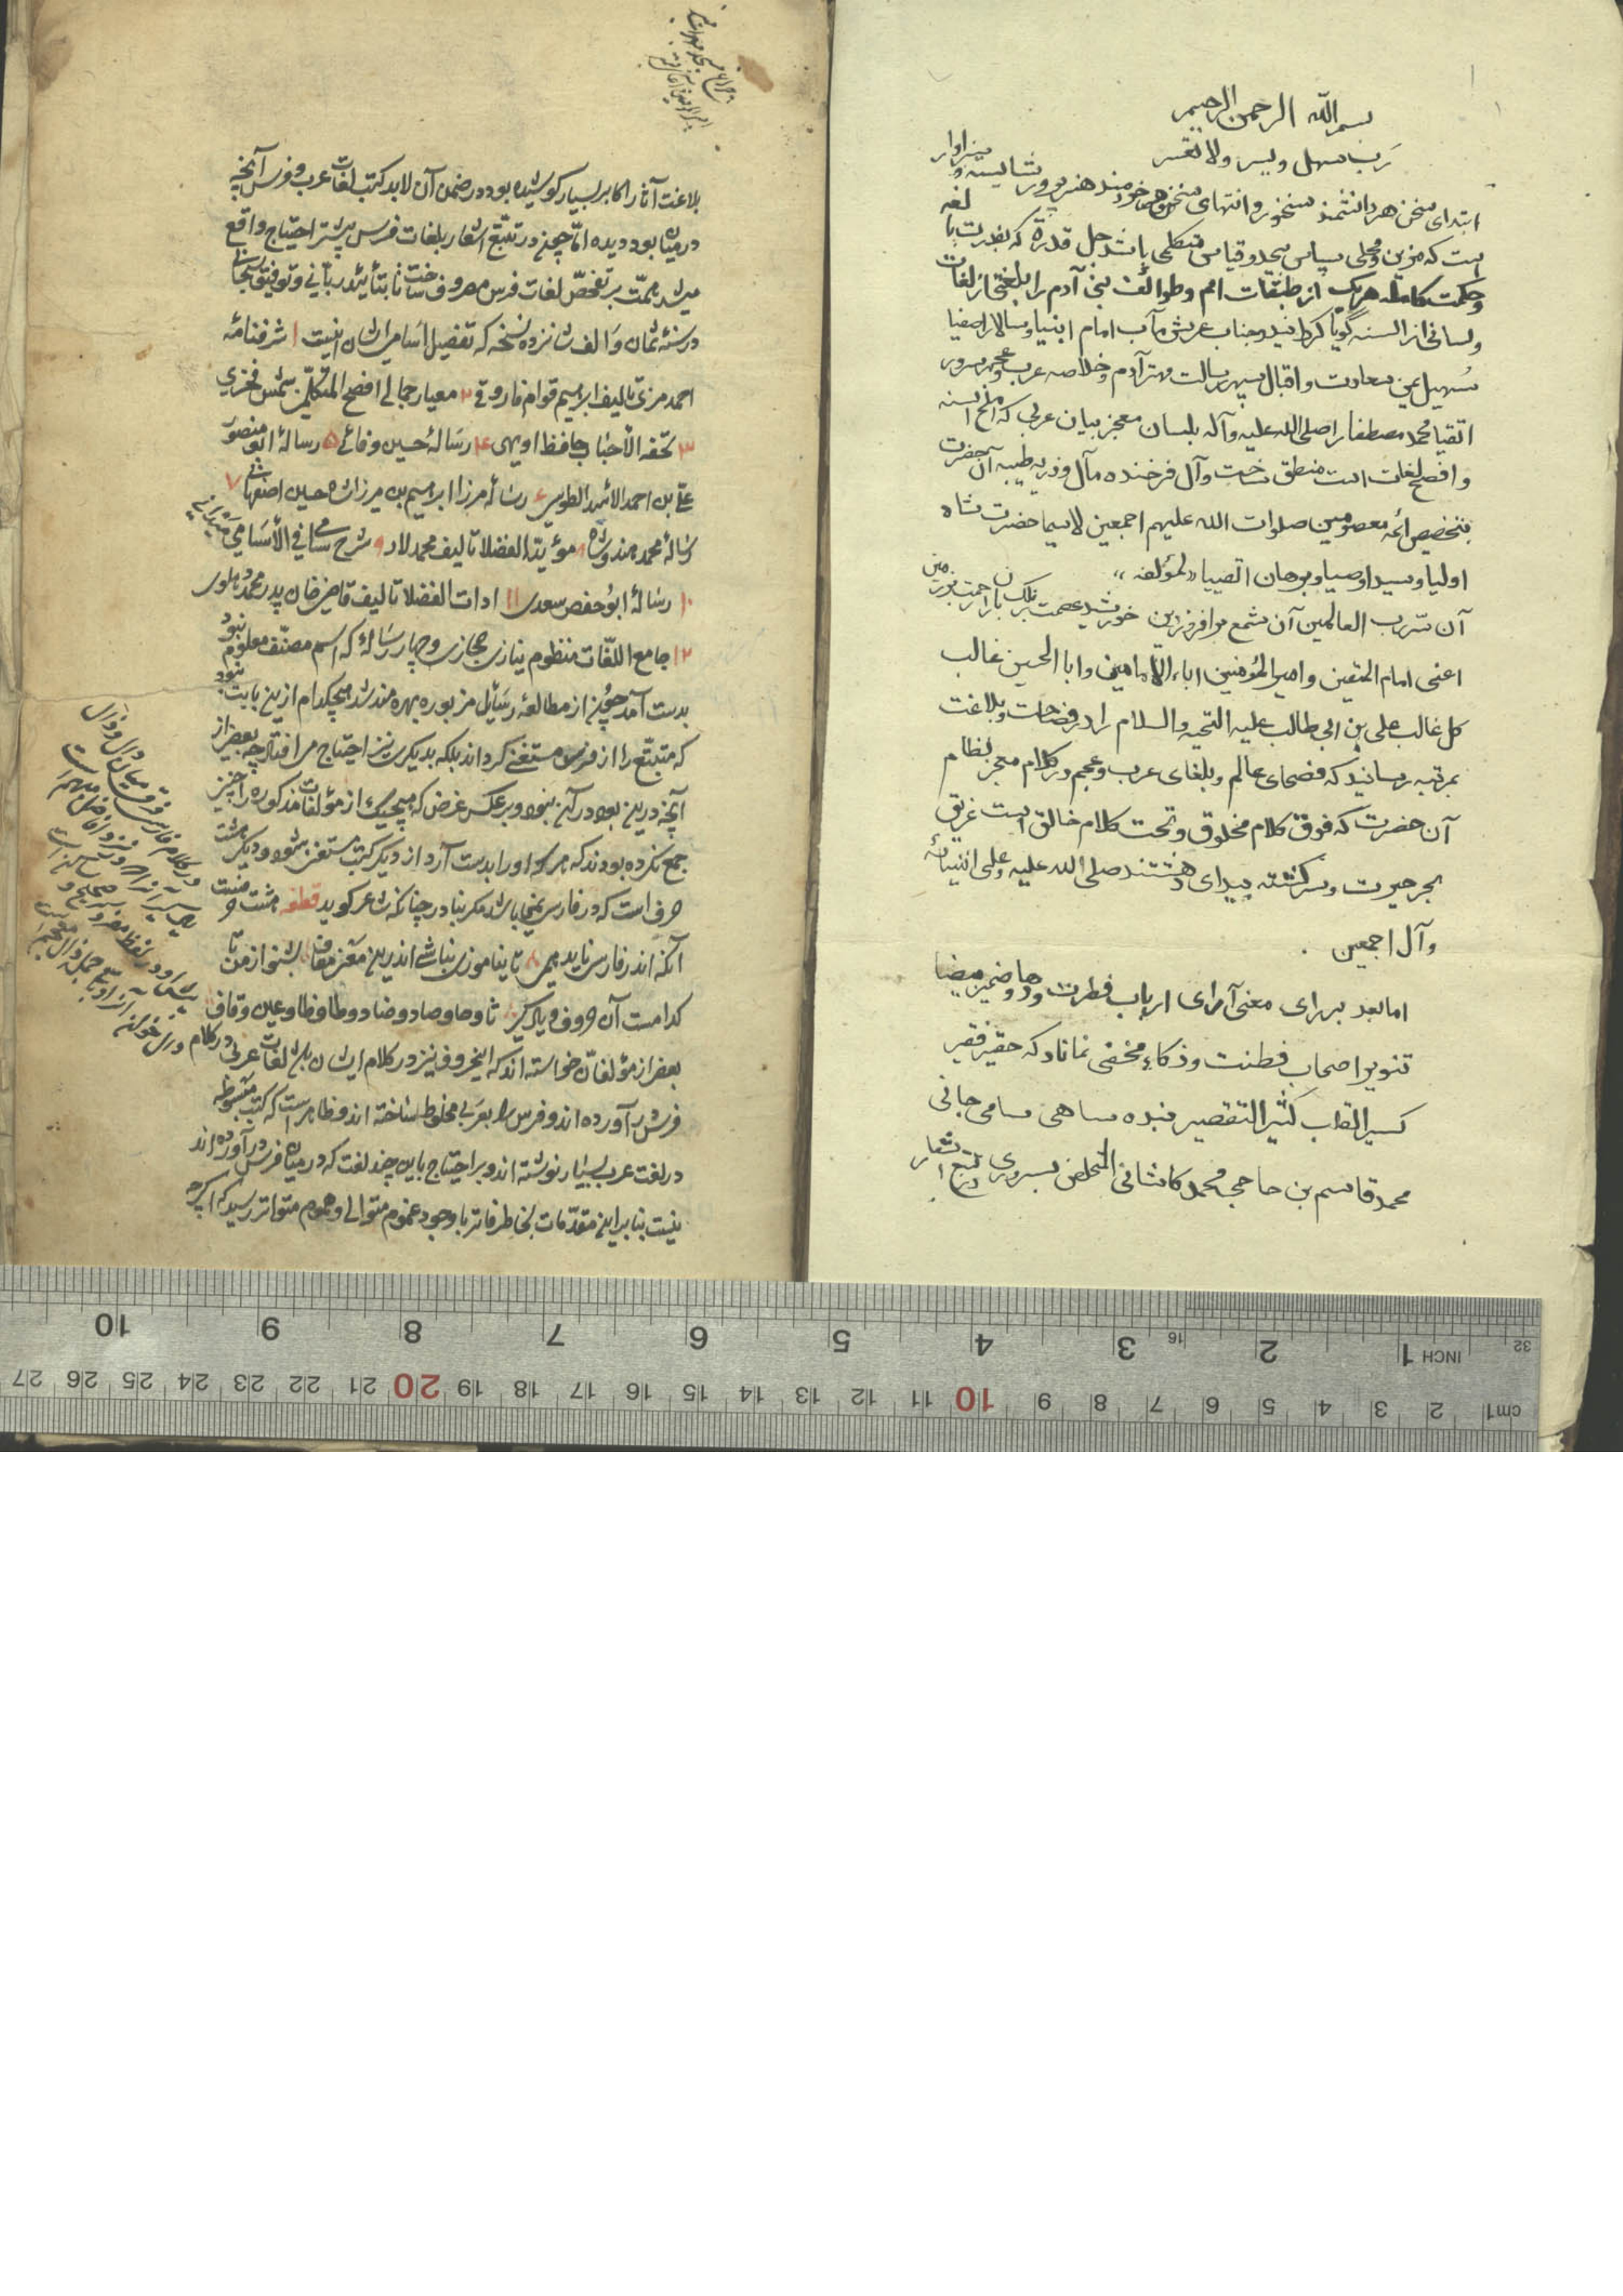 بسم الله الرحمن الرحیم
رب سهل ویسر ولا تعسر
ابتدای سخن هر دانشمند سخنور و انتهای سخن هر خردمند هنرپرور شایسته و سزاوار
است که مزین و محلی بسپاس بیحد و قیاس متکلمی باشد جل قدره که بقدرت بالغه
و حکمت کامله هریک از طبقات امم و طوائف بنی آدم را بلغتی از لغات
و لسانی از السنه گویا گردانید و جناب عرش مآب امام انبیا و سالار اصفیا
سهیل یمن سعادت و اقبال سپهر رسالت مهتر آدم و خلاصه عرب و عجم سرور
اتقیا محمد مصطفا را صلی الله علیه وآله بلسان معجز بیان عربی که املح السنه
و افصح لغات است منطق ساخت و آل فرخنده مآل و ذریه طیبه آن حضرت
بتخصیص ائمه معصومین صلوات الله علیهم اجمعین لاسیما حضرت شاه
اولیا و سید اوصیا و برهان اتقیا لمؤلفه
آن سرّ رب العالمین آن شمع برافروز دین خورشید عصمت بر فلک باران رحمت بر زمین
اعنی امام المتقین و امیر المؤمنین اباء الامامین و ابا الحسین غالب
کل غالب علی بن ابی طالب علیه التحیه والسلام را در فصاحت و بلاغت
بمرتبه رسانید که فصحای عالم و بلغای عرب و عجم در کلام معجز نظام
آن حضرت که فوق کلام مخلوق و تحت کلام خالق است غریق
بحر حیرت و سرگشته بیدای دهشتند صلی الله علیه وعلی انبیائه
وآل اجمعین
اما بعد بر رای معنی آرای ارباب فطرت و دها و ضمیر میضا
تنویر اصحاب فطنت و ذکاء مخفی نماناد که حقیر فقیر
کسیر القلب کثیر التقصیر بنده ساهی سامی جانی
محمد قاسم بن حاجی محمد کاشانی المتخلص بسروری در تتبع اشعار
بلاغت آثار اکابر بسیار کوشیده بود و در ضمن آن لابد کتب لغات عرب و فرس آنچه
در میان بود دیده اما چون در تتبع اشعار بلغات فرس بیشتر احتیاج واقع
میشد همت بر تفحص لغات فرس مصروف ساخت تا بتأیید ربانی و توفیق سبحانی
در سنه ثمان و الف شانزده نسخه که تفصیل اسامی ایشان اینست ۱ شرفنامه
احمد منری تالیف ابراهیم قوام فاروقی ۲ معیار جمالی افصح المتکلمین شمس فخری
۳ تحفه الأحباب حافظ اوبهی ۴ رساله حسین وفائی ۵ رساله ابو منصور
علی بن احمد الاسدی الطوسی ۶ رساله مرزا ابراهیم بن مرزا شاه حسین اصفهانی ۷
رساله محمد هندوشاه ۸ مؤید الفضلا تالیف محمد لاد ۹ شرح سامی فی الأسامی میدانی
۱۰ رساله ابو حفص سعدی ۱۱ ادات الفضلا تالیف قاضی خان بدر محمد دهلوی
۱۲ جامع اللغات منظوم نیازی حجازی و چهار رساله که اسم مصنف معلوم نبود
بدست آمد چون از مطالعه رسایل مزبوره بهره مند شد هیچکدام ازین بابت نبود
که متتبع را از فرس مستغنی گرداند بلکه بدیگری نیز احتیاج می افتاد چه بعضی از
آنچه درین بود در آن نبود و بر عکس غرض که هیچیک از مؤلفات مذکوره را چنین
جمع نکرده بودند که هرکه او را بدست آرد از دیگر کتب مستغنی شود و دیگر هشت
حرف است که در فارسی نمی باشد مگر بنادر چنانکه شاعر گوید قطعه هشت حرفست
آنکه اندر فارسی ناید همی تا نیاموزی نباشی اندرین معنی معاف بشنو از من تا
کدامست آن حروف و یاد گیر ثا و حا و صاد و ضاد و طا و ظا و عین و قاف
بعضی از مؤلفان خواسته اند که این حروف نیز در کلام ایشان باشد لغات عربی در کلام
فرس در آورده اند و فرس را بعربی مخلوط ساخته اند و ظاهر است که کتب مبسوطه
در لغت عرب بسیار نوشته اند و بر احتیاج باین چند لغت که در میان فرس در آورده اند
نیست بنا برین مقدمات بخاطر فاتر با وجود غموم متوالی و هموم متواتر رسید که اگرچه